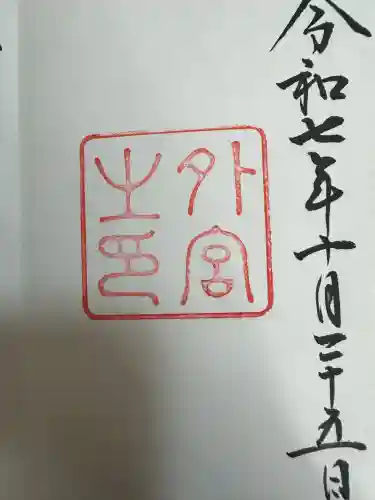 令和七年十月二十五日
外宮
之印